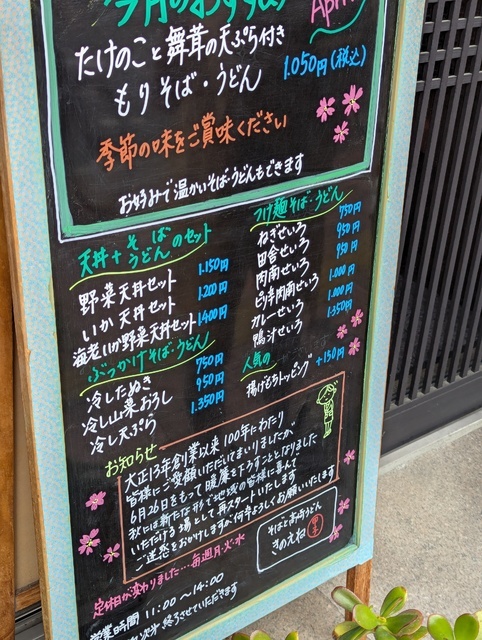 今月のおすすめ
April
たけのこと舞茸の天ぷら付き
もりそば・うどん
1.050円(税込)
季節の味をご賞味ください
お好みで温かいそば・うどんもできます
天丼+そば うどんのセット
野菜天丼セット 1.150円
いか天丼セット 1.200円
海老いか野菜天丼セット 1.400円
ぶっかけそば・うどん
冷したぬき 750円
冷し山菜おろし 950円
冷し天ぷら 1.350円
つけ麺そば・うどん
ねぎせいろ 750円
田舎せいろ 950円
肉南せいろ 950円
ピリ辛肉南せいろ 1.000円
カレーせいろ 1.000円
鴨汁せいろ 1.350円
人気の
揚げもちトッピング +150円
お知らせ
大正13年創業以来100年にわたり
皆様にご愛顧いただいてまいりましたが
6月26日をもって暖簾を下ろすこととなりました
秋には新たな形で地域の皆様に喜んで
いただける場として再スタートいたします
ご迷惑をおかけしますが何卒よろしくお願いいたします
そばと寿司うどん
きのえね
定休日が変わりました…毎週月・火・水
営業時間 11:00〜14:00
終了させていただきます